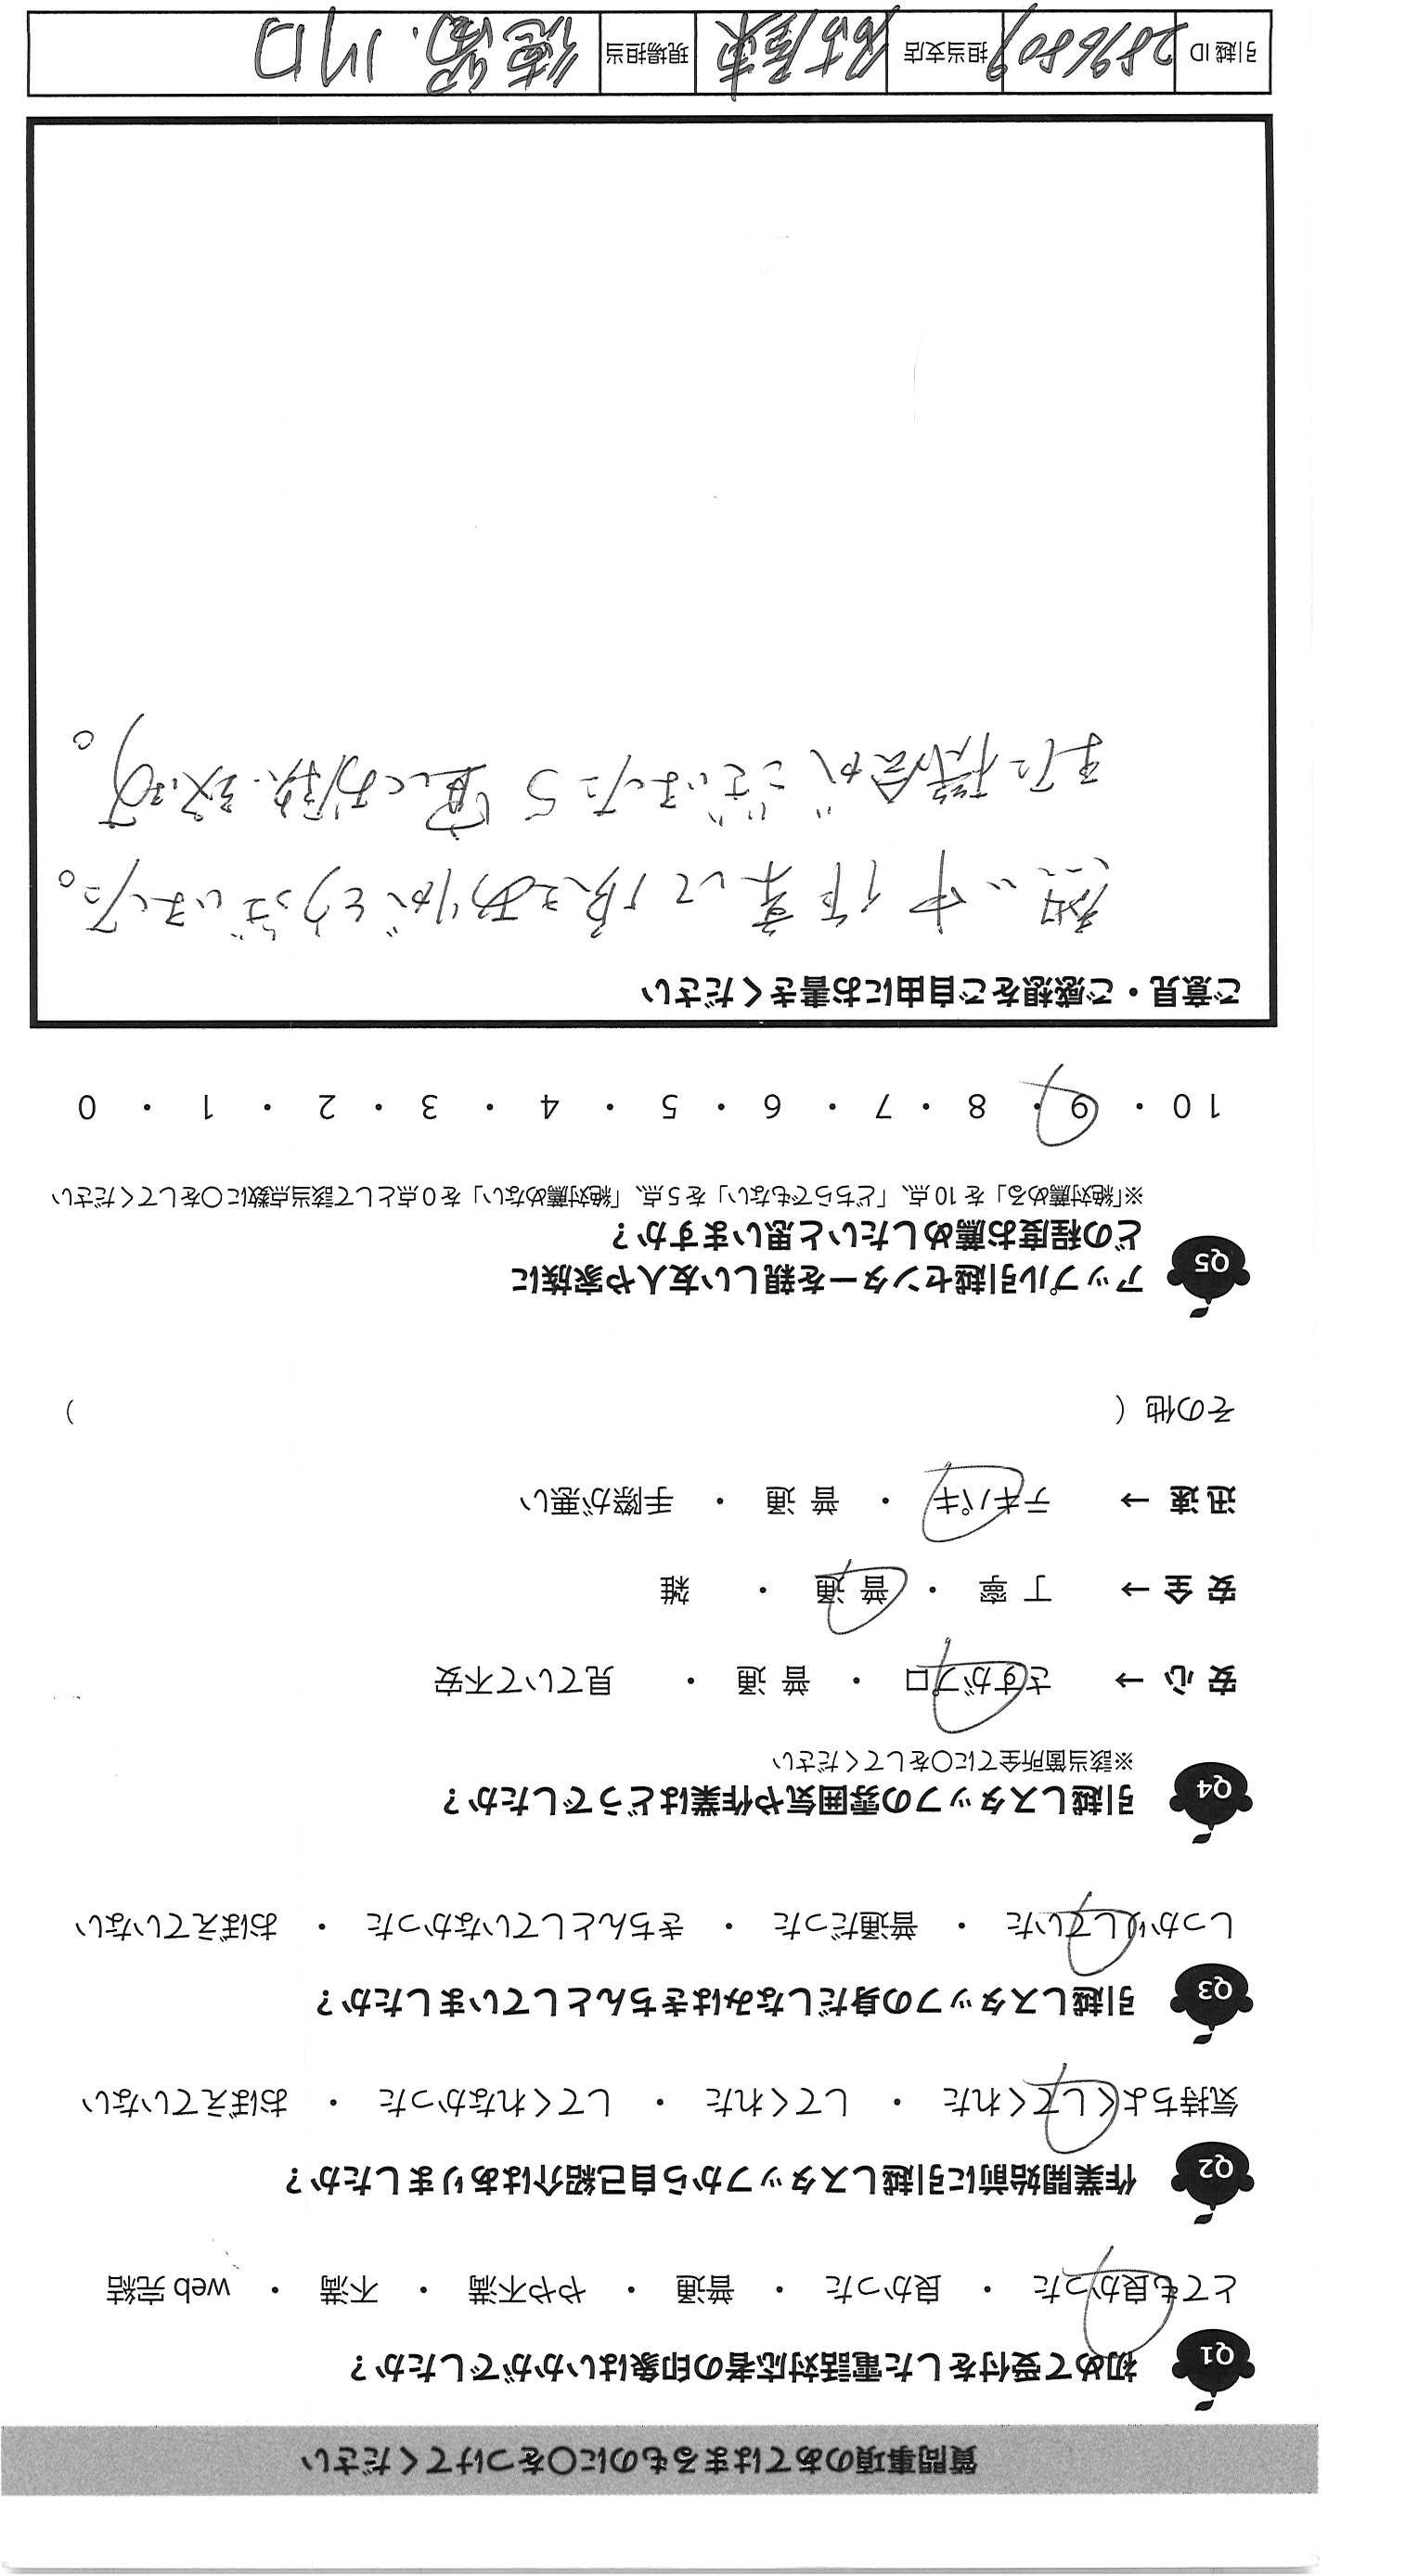 質問事項のあてはまるものに○をつけてください
Q1 初めて受付をした電話対応者の印象はいかがでしたか？
とても良かった ・ 良かった ・ 普通 ・ やや不満 ・ 不満 ・ web 完結
Q2 作業開始前に引越しスタッフから自己紹介はありましたか？
気持ちよくしてくれた ・ してくれた ・ してくれなかった ・ おぼえていない
Q3 引越しスタッフの身だしなみはきちんとしていましたか？
しっかりしていた ・ 普通だった ・ きちんとしていなかった ・ おぼえていない
Q4 引越しスタッフの雰囲気や作業はどうでしたか？
※該当箇所全てに○をしてください
安 心 → さすがプロ ・ 普 通 ・ 見ていて不安
安 全 → 丁 寧 ・ 普 通 ・ 雑
迅 速 → テキパキ ・ 普 通 ・ 手際が悪い
その他（ ）
Q5 アップル引越センターを親しい友人や家族に
どの程度お薦めしたいと思いますか？
※「絶対薦める」を 10 点、「どちらでもない」を 5 点、「絶対薦めない」を 0 点として該当点数に○をしてください
10 ・ 9 ・ 8 ・ 7 ・ 6 ・ 5 ・ 4 ・ 3 ・ 2 ・ 1 ・ 0
ご意見・ご感想をご自由にお書きください
暑い中作業して頂きありがとうございました。
また機会がございましたら宜しくお願い致します。
引越 ID 担当支店 名古屋東 現場担当 徳留. 川口